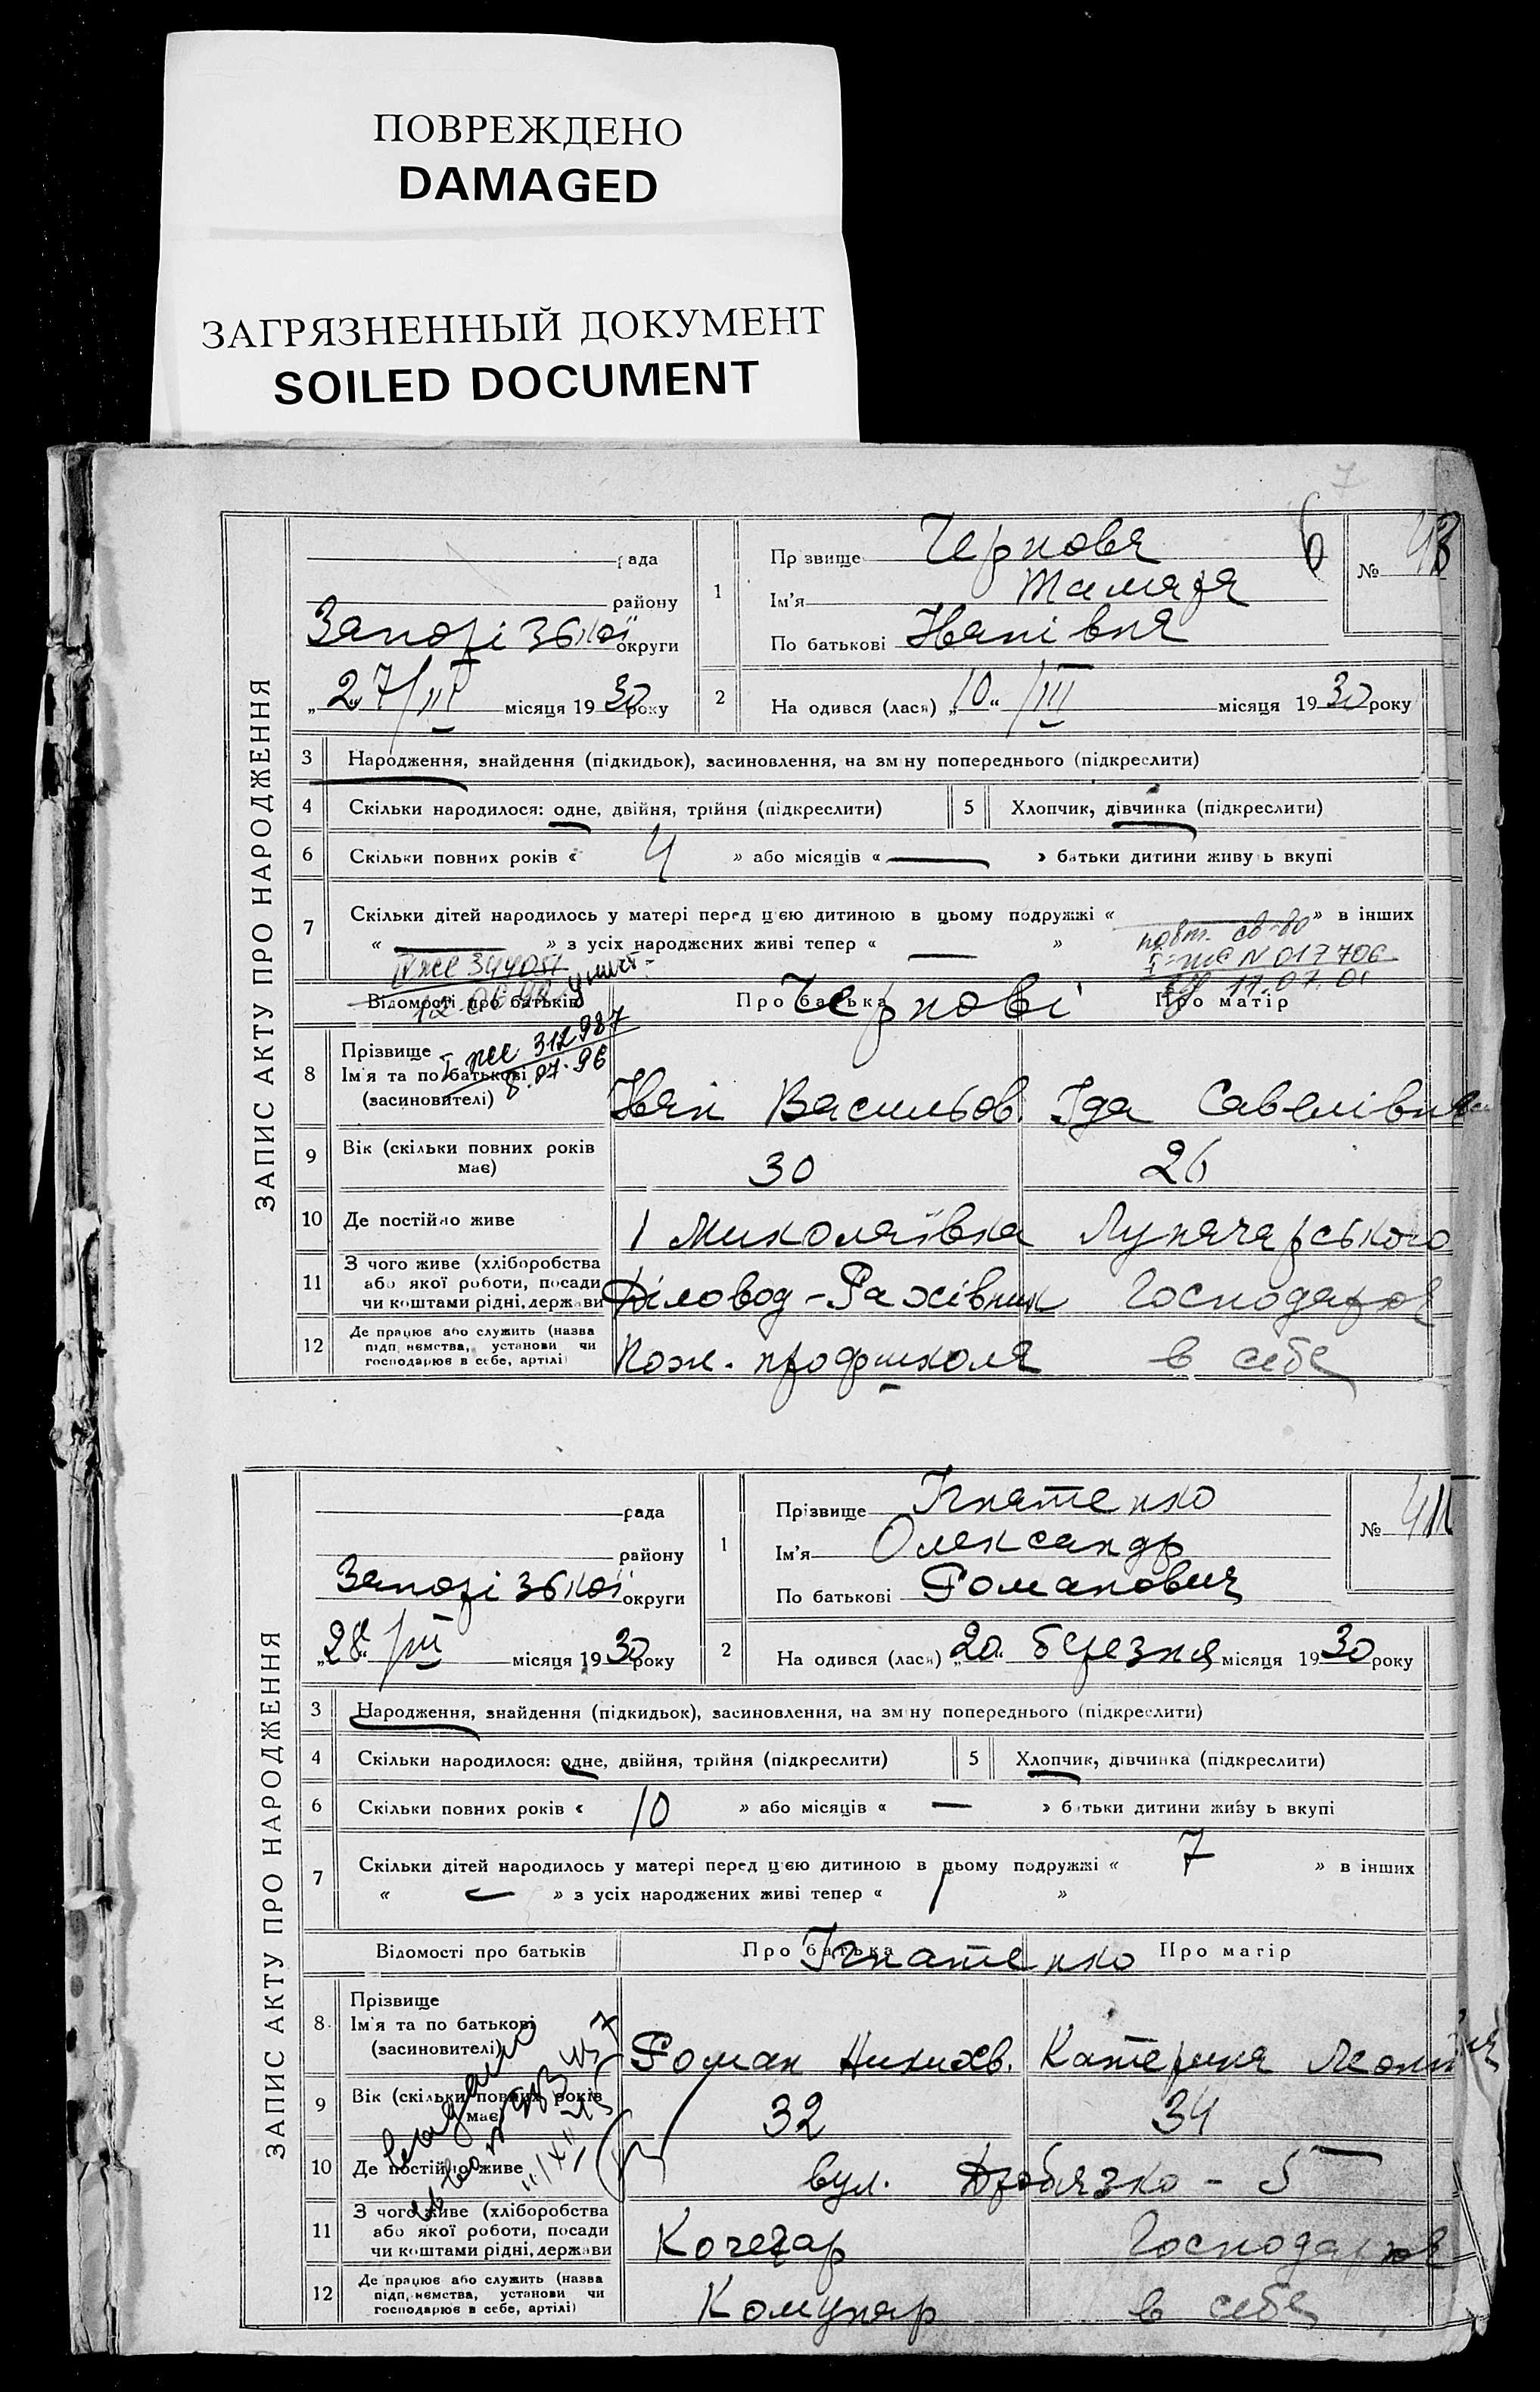 ПОВРЕЖДЕНО
DAMAGED
ЗАГРЯЗНЕННЫЙ ДОКУМЕНТ
SOILED DOCUMENT
7
ЗАПИС АКТУ ПРО НАРОДЖЕННЯ
рада
району
Запорізької округи
„27/III місяця 1930 року
1
Прізвище Чернова
Ім'я Тамара
По батькові Іванівна
6
№ 48
2
На одився (лася) „10“ /III місяця 1930 року
3 Народження, знайдення (підкидьок), засиновлення, на зм ну попереднього (підкреслити)
4 Скільки народилося: одне, двійня, трійня (підкреслити)
5 Хлопчик, дівчинка (підкреслити)
6 Скільки повних років « 4 » або місяців « — » батьки дитини живу ь вкупі
7 Скільки дітей народилось у матері перед цією дитиною в цьому подружжі « — » в інших
« — » з усіх народжених живі тепер « — »
повт. св-во
I-ЖС N 017706
17.07.01
IV ЖС 344051
Відомості про батьків
Про батька Чернові Про матір
I ЖС 312987
8.07.96
8 Прізвище
Ім'я та по батькові
(засиновителі)
Іван Васильов. Іда Савелівна
9 Вік (скільки повних років має) 30 26
10 Де постійно живе І Миколаївка Луначарського
11 З чого живе (хліборобства
або якої роботи, посади
чи коштами рідні, держави
Діловод-Рахівник Господарює
12 Де працює або служить (назва
підп. иємства, установи чи
господарює в себе, артілі)
Пож. профшкола в себе
ЗАПИС АКТУ ПРО НАРОДЖЕННЯ
рада
району
Запорізької округи
„28“ /III місяця 1930 року
1
Прізвище Ігнатенко
Ім'я Олександр
По батькові Романович
№
2
На одився (лася) „20“ березня місяця 1930 року
3 Народження, знайдення (підкидьок), засиновлення, на зм ну попереднього (підкреслити)
4 Скільки народилося: одне, двійня, трійня (підкреслити)
5 Хлопчик, дівчинка (підкреслити)
6 Скільки повних років « 10 » або місяців « — » батьки дитини живу ь вкупі
7 Скільки дітей народилось у матері перед цією дитиною в цьому подружжі « 7 » в інших
« — » з усіх народжених живі тепер « »
Відомості про батьків
Про батька Ігнатенко Про матір
8 Прізвище
Ім'я та по батькові
(засиновителі)
Роман Никихв. Катерина
9 Вік (скільки повних років має) 32 34
10 Де постійно живе вул. Дробязко - 5
11 З чого живе (хліборобства
або якої роботи, посади
чи коштами рідні, держави
Кочегар Господарює
12 Де працює або служить (назва
підп. иємства, установи чи
господарює в себе, артілі)
Комунар в себе